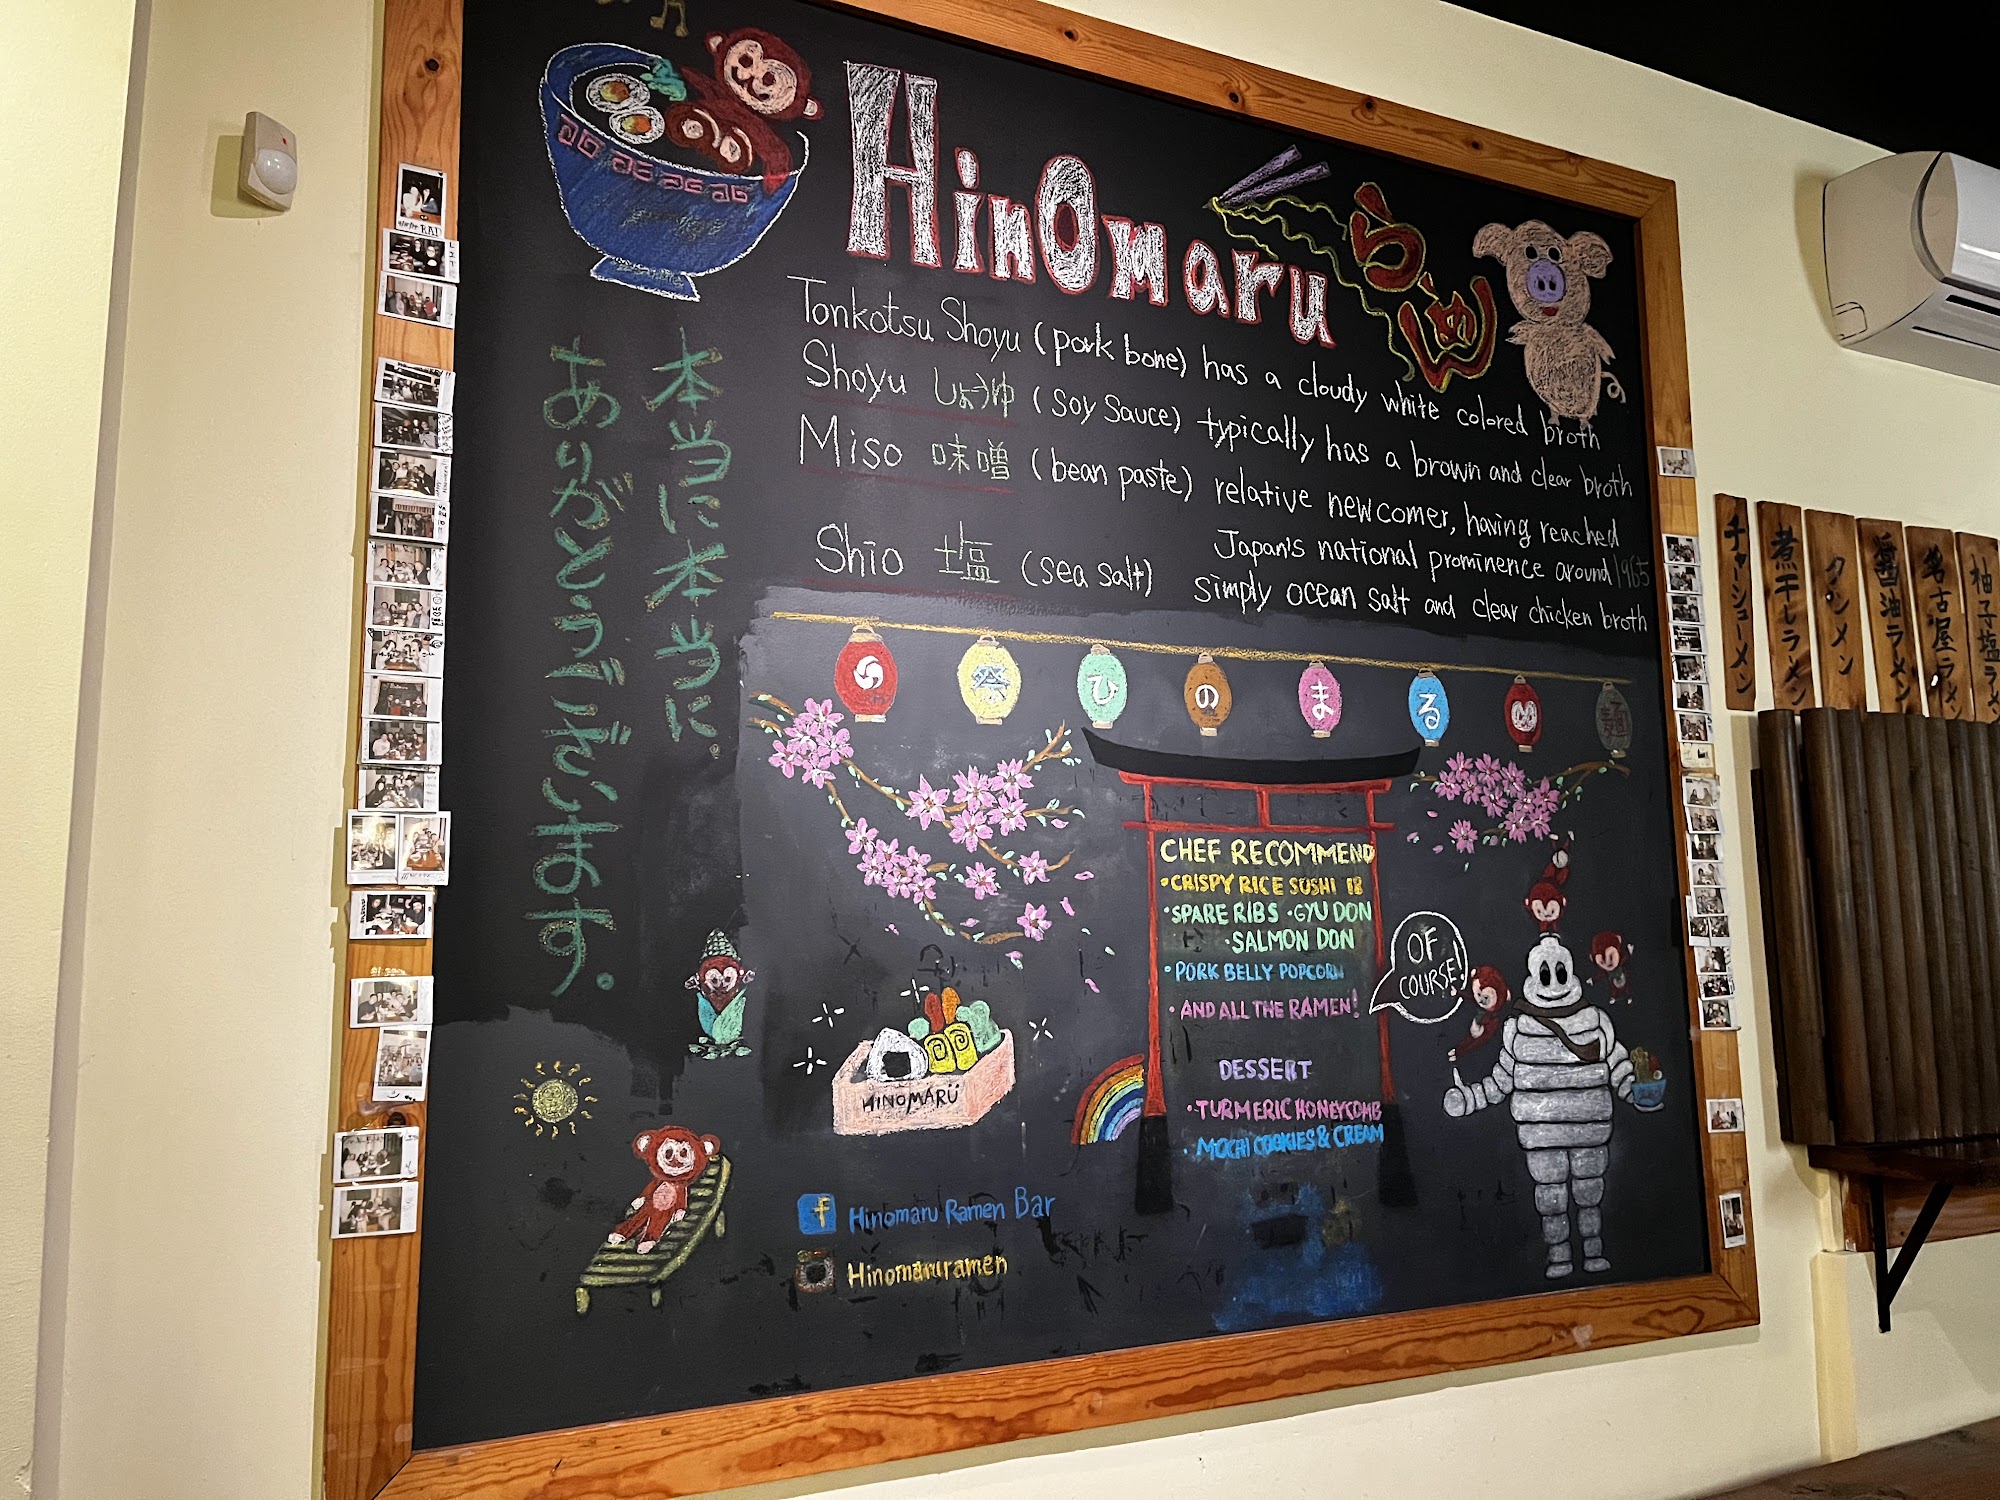 HinOmaru
らーめん
Tonkotsu Shoyu (pork bone) has a cloudy white colored broth
Shoyu しょうゆ (soy sauce) typically has a brown and clear broth
Miso 味噌 (bean paste) relative newcomer, having reached
Japan's national prominence around 1965
Shio 塩 (sea salt) simply ocean salt and clear chicken broth
本当に本当に
ありがとうございます。
祭
ひ
の
ま
る
CHEF RECOMMEND
• CRISPY RICE SUSHI 18
• SPARE RIBS • GYU DON
• SALMON DON
• PORK BELLY POPCORN
• AND ALL THE RAMEN!
DESSERT
• TURMERIC HONEYCOMB
• MOCHI COOKIES & CREAM
OF
COURSE!
HINOMARU
f Hinomaru Ramen Bar
Hinomaruramen
チャーシューメン
煮干しラーメン
タンメン
醤油ラーメン
名古屋ラーメン
柚子塩ラーメ